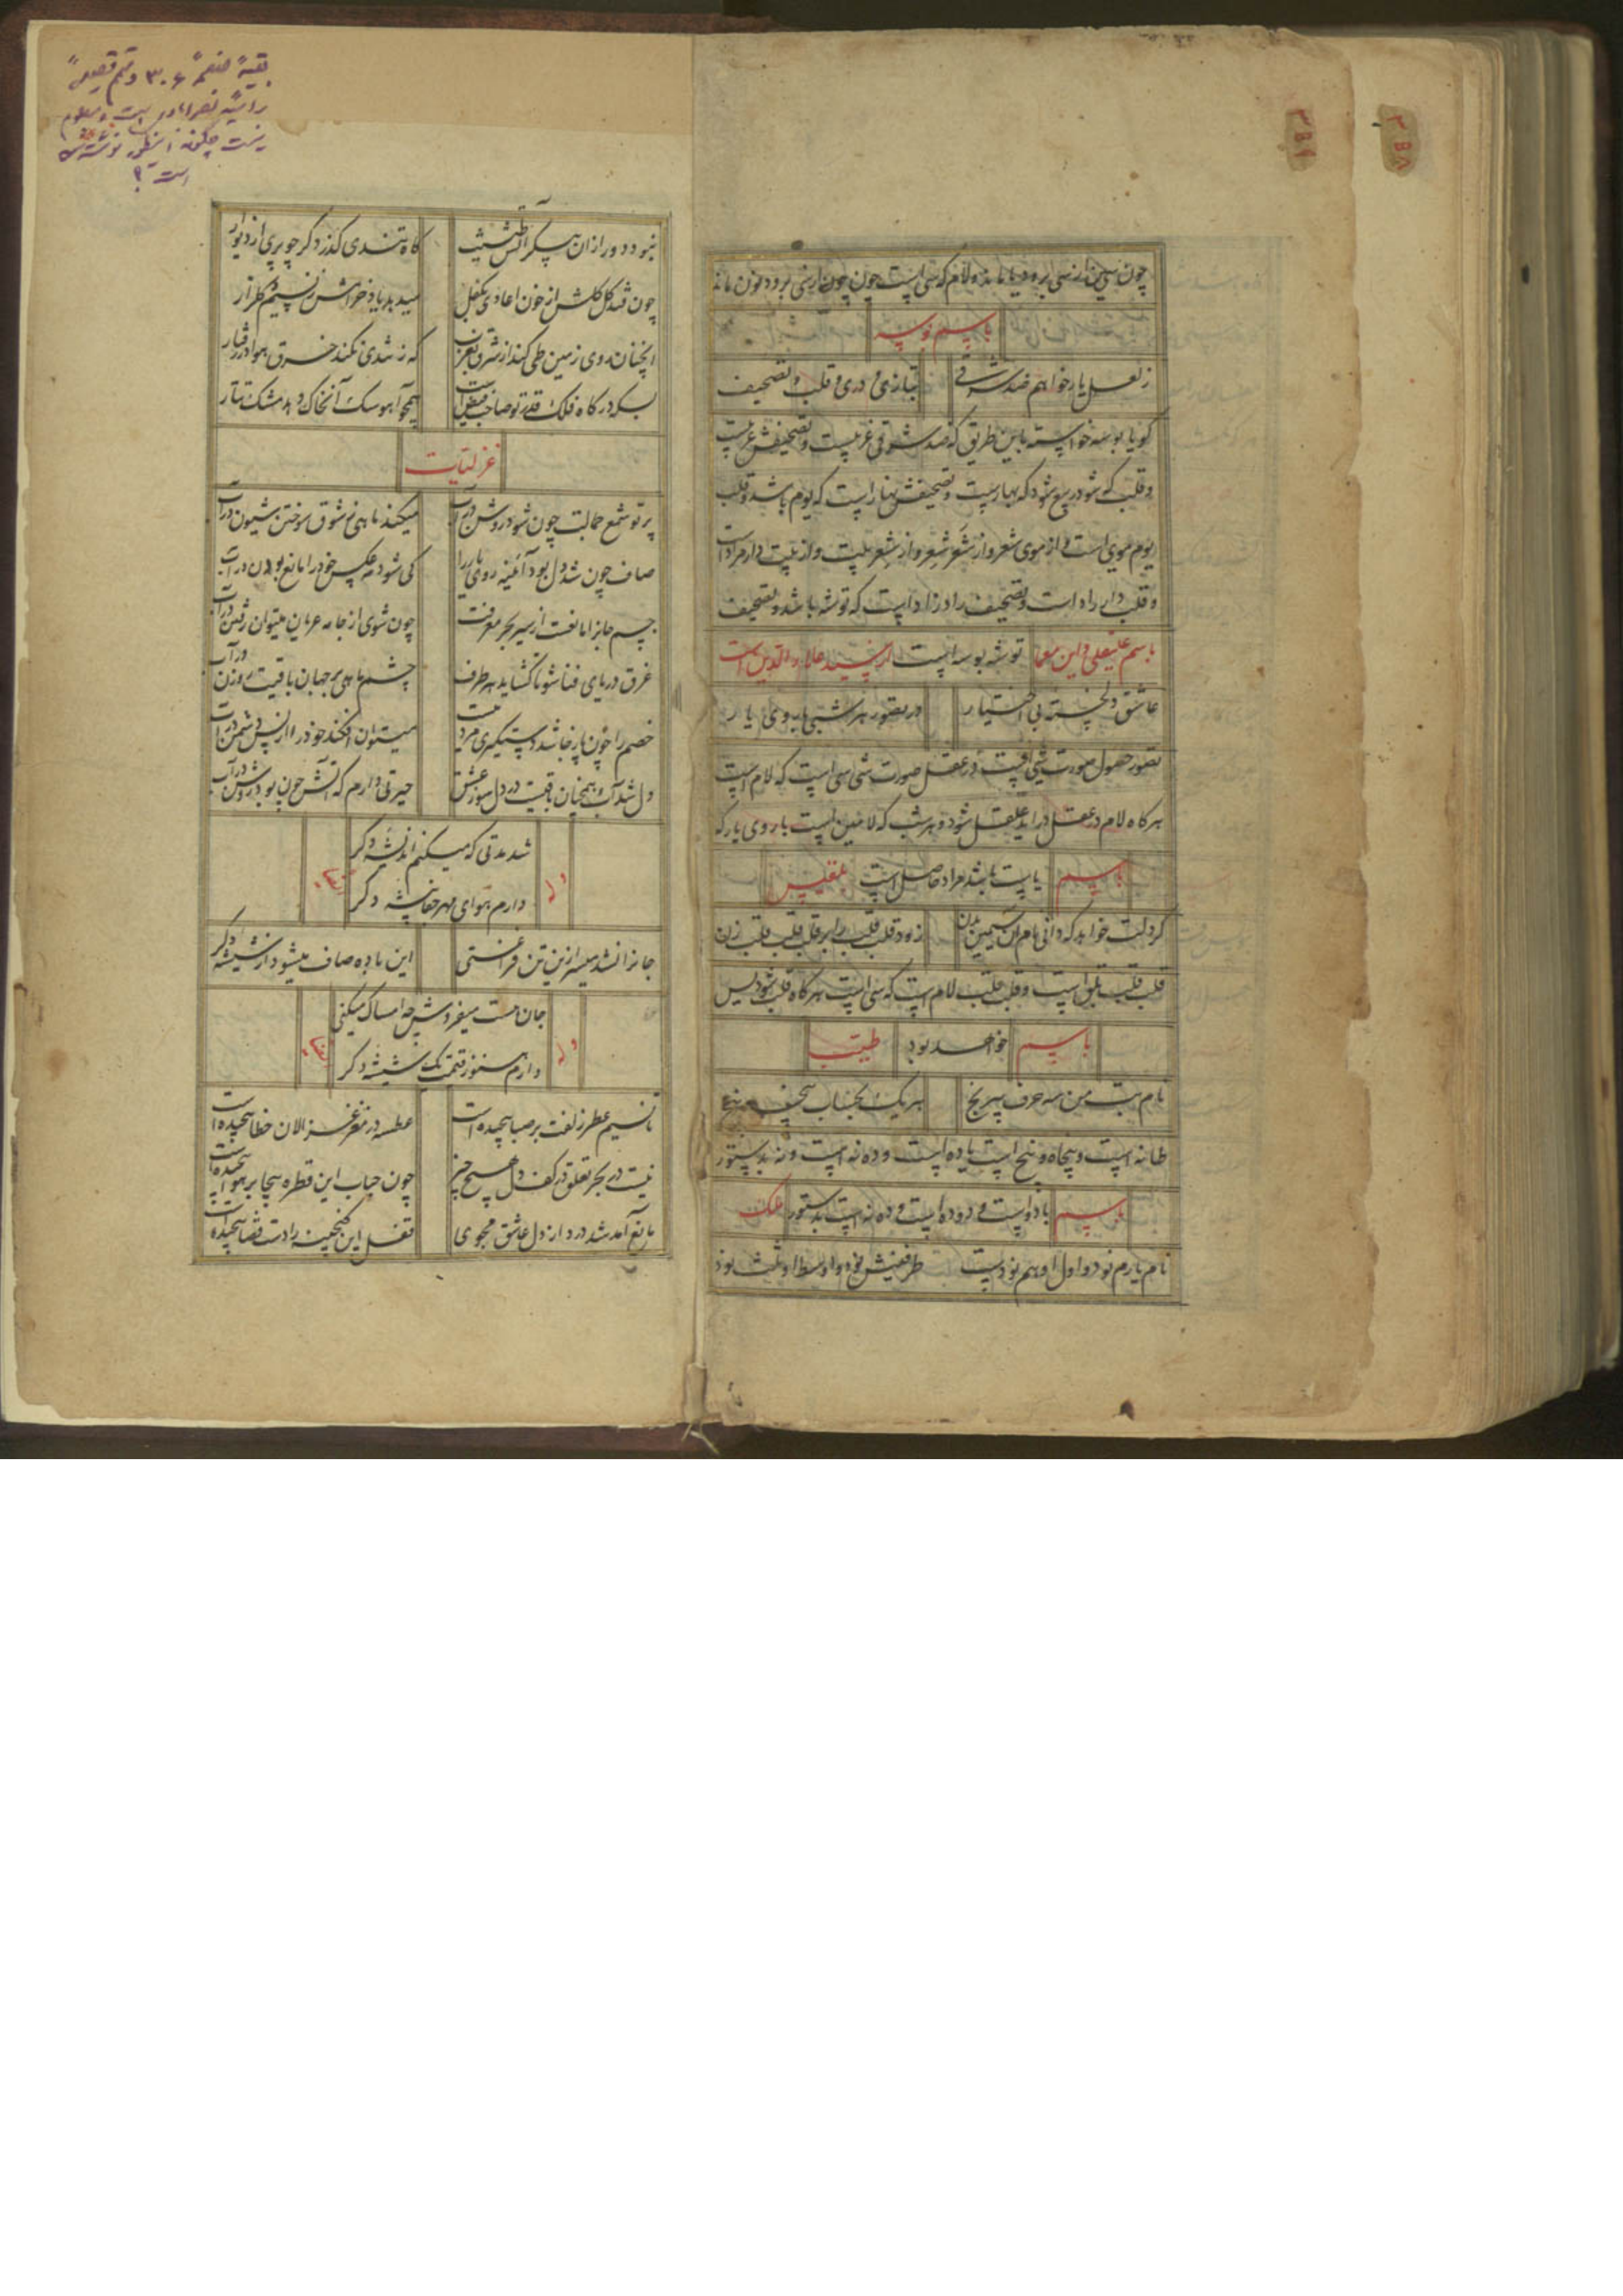 ۳۵۸
۳۵۹
چون سین از سی برود یا ماند و لام که سی است چون از سی برود نون ماند
باسم بوسه
ز لعل یار خواهم ضد شرقی
بتازی و دری و قلب و تصحیف
گویا بوسه خواسته باین طریق که ضد شرقی غربیست و تصحیفش عربیست
و قلب که شود ربیع شود که بهارست و تصحیفش نهار است که یوم باشد و قلب
یوم مویست و از موی شعر و از شَعر شِعر و از شعر بیت و از بیت دار مراد است
و قلب دار راد است و تصحیف راد زاد است که توشه باشد و تصحیف
توشه بوسه است
باسم علیقلی و این معما
عاشق دلخسته بی اختیار
در تصور هر شبی با روی یار
تصور حصول صورت شیٔ است در عقل صورت شی سی است که لام است
هرگاه لام در عقل دراید علقل شود و هر شب که لامین است با روی یار که
یا است باشد مراد حاصل است
باسم
بلقیس
گر دلت خواهد که دانی نام آن سیمین بدن
زود قلب قلب را بر قلب قلب قلب زن
قلب قلب بلق است و قلب قلب لام است که سی است هرگاه قلب شود یس
خواهد بود
باسم
طیب
نام بت من سه حرف
هر یک بحساب
طا نه است و پنجاه و پنج است یا ده است و ده نه است و نه بدستور
با دو است و دو ده است و ده نه است بدستور
باسم
ملک
نام یارم نود و اول او هم نودست
طرفینش نود و اوسط او نیست نود
بقیهٔ صفحهٔ ۳۰۶ و تتم قصیدهٔ
رائیهٔ نصرآبادی است و معلوم
نیست چگونه اینطور نوشته شده
است؟
نبود دور از آن پیکر آتش طینت
گاه تندی گذرد گر چو پری از دیوار
چون شد گل گلش از خون اعادی بکفل
میدهد یاد خرامش ز نسیم گلزار
آنچنان روی زمین طی کند از شرق بغرب
که ز تندی نکند خرق هوا در رفتار
بسکه درگاه فلک قدر تو صاحب فیض است
همچو آهو سگ آنخاک دهد مشک تتار
غزلیات
پرتو شمع جمالت چون شود روشن در آب
میکند ماهی ز شوق سوختن شیون در آب
صاف چون شد دل بود آئینه روی یار را
کی شود مه عکس خود را مانع بودن در آب
جسم جانرا مانعست از سیر بحر معرفت
چون شوی از جامه عریان میتوان رفتن در آب
غرق دریای فنا شو تا گشاید هر طرف
چشم ماهی بر جهان باقیت روزن در آب
خصم را چون پا ز جا شد دستگیری مردیست
میتوان افکند خود را از پس دشمن در آب
دل شد آب و همچنان باقیست در دل سوز عشق
حیرتی دارم که آتش چون بود روشن در آب
وله
شد مدتی که میکنم اندیشه دگر
دارم هوای مهر جفا پیشه دگر
جانرا نشد میسر ازین تن فراغتی
این باده صاف میشود از شیشه دگر
وله
جان مست میفروش چه امساک میکنی
دارم هنوز قیمت یک شیشه دگر
تا نسیم عطر زلفت بر صبا پیچیده است
عطسه در مغز غزالان خطا پیچیده است
نیست در بحر تعلق در کف دل هیچ چیز
چون حباب این قطره بیجا بر هوا پیچیده است
مانع آمد شد درد از دل عاشق مجوی
قفل این گنجینه را دست قضا پیچیده است